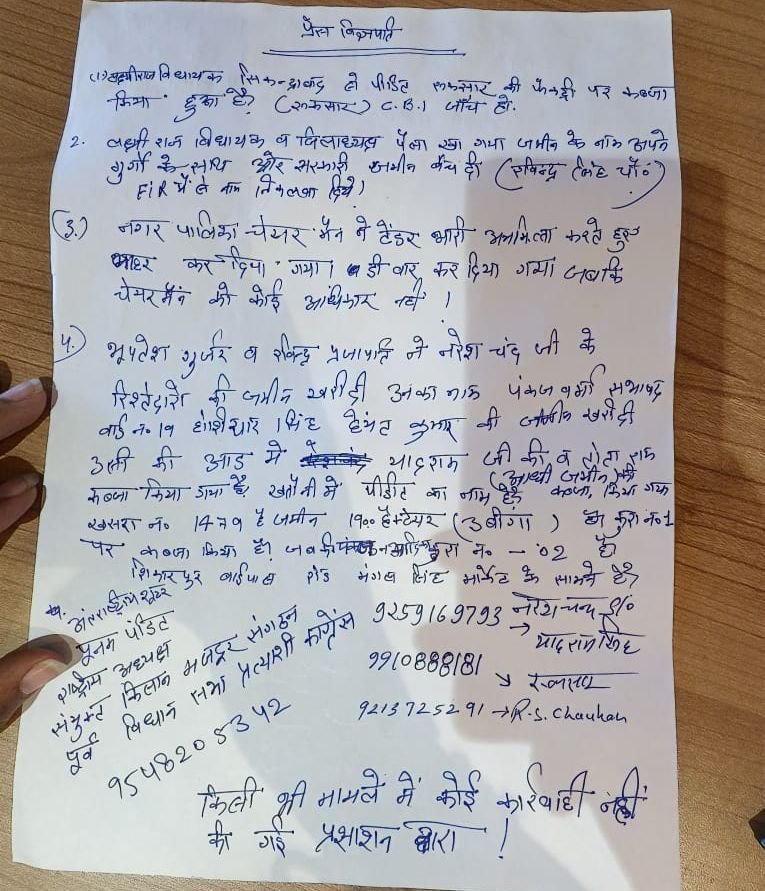 प्रेस विज्ञप्ति
(1) लक्ष्मीराज विधायक सिकन्द्राबाद ने पीडित रुकसार की फैक्ट्री पर कब्जा
किया हुआ है? (रुकसार) C.B.I जाँच हो.
2. लक्ष्मी राज विधायक व जिलाध्यक्ष पैसा खा गया जमीन के नाम अपने
गुर्गो के साथ और सरकारी जमीन बेच दी (रविन्द्र सिंह चौ॰)
FIR में से नाम निकलवा दिये।
(3.) नगर पालिका चेयर मैन ने टेंडर भारी करते हुए
कर दिया गया। डी बार कर दिया गया जबकि
चेयर मैन को कोई अधिकार नहीं।
4.) भूपतेश गुर्जर व रविन्द्र प्रजापति ने नरेश चंद जी के
रिश्तेदारो की जमीन खरीदी उनका नाम पंकज वर्मा सभाषद
वार्ड न॰ 19 होशियार सिंह हेमंत कुमार की जमीन खरीदी
उसी की आड मे यादराम जी की व तोता राम
(आधी जमीन की
कब्जा किया गया है, खतौनी में पीडित का नाम है? कब्जा, किया गया
खसरा न॰ 1479 है जमीन 1900 हैक्टेयर (3 बीगा) है कुरा न॰ 1
पर कब्जा किया है। जबकी कुरा न॰ - 02 है
शिकारपुर बाईपास रोड मंगल सिंह मार्केट के सामने है?
अंतराष्ट्रीय शूटर
पूनम पंडित
राष्ट्रीय अध्यक्ष
संयुक्त किसान मजदूर संगठन
पूर्व विधान सभा प्रत्याशी कांग्रेस
9548205342
9259169793 नरेश चन्द S/o
→ यादराम सिंह
9910888181 → रुकसार
9213725291 → R.S. Chauhan
किसी भी मामले में कोई कार्रवाही नहीं
की गई प्रसाशन द्वारा !